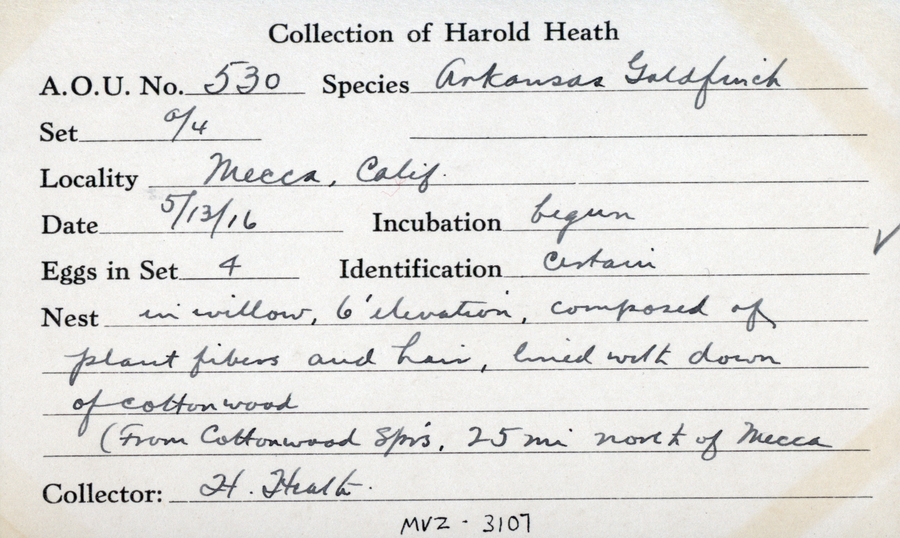 Collection of Harold Heath
A.O.U. No. 530 Species Arkansas Goldfinch
Set a/4
Locality Mecca, Calif.
Date 5/13/16 Incubation begun
Eggs in Set 4 Identification Certain
Nest in willow, 6' elevation, composed of
plant fibers and hair, lined with down
of cottonwood
(From Cottonwood Spr's, 25 mi north of Mecca
Collector: H. Heath.
MVZ - 3107